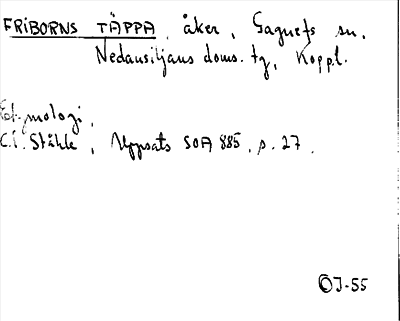 FRIBORNS TÄPPA, åker, Gagnefs sn,
Nedansiljans doms. tg, Koppl.
Etymologi,
C.I. Ståhle, Uppsats SOA 885, s. 27.
ÖJ-55